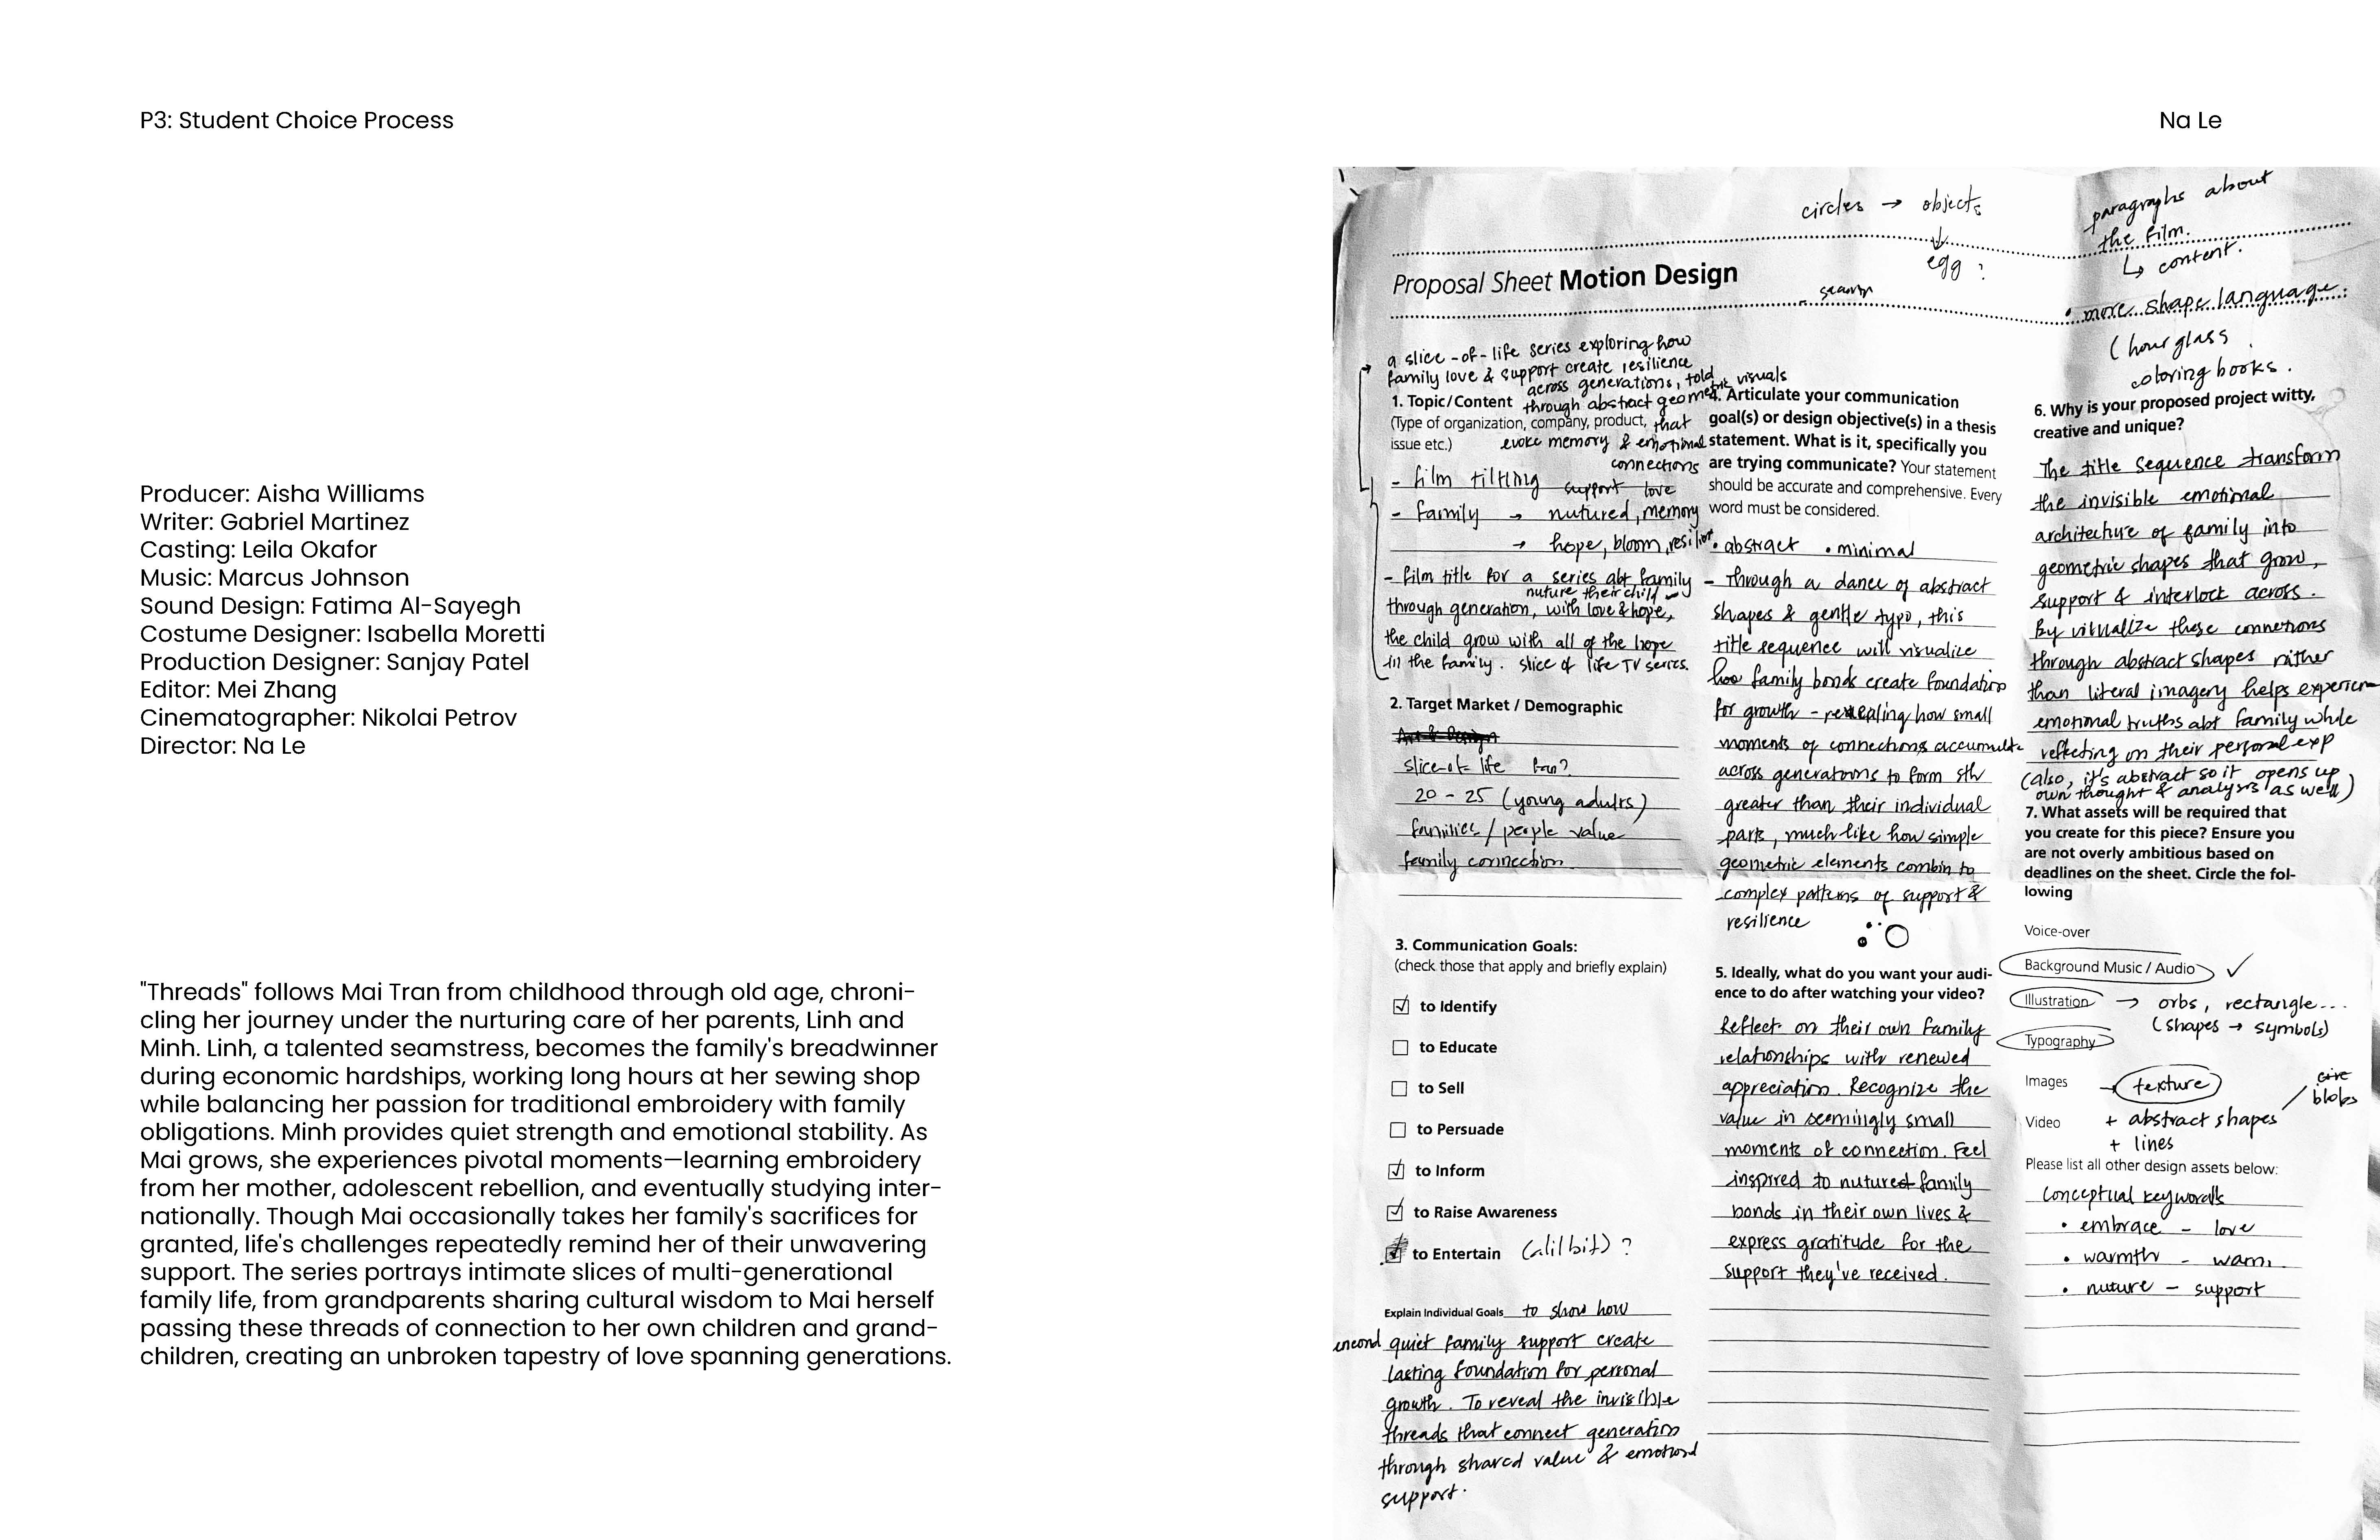 P3: Student Choice Process
Na Le
Producer: Aisha Williams
Writer: Gabriel Martinez
Casting: Leila Okafor
Music: Marcus Johnson
Sound Design: Fatima Al-Sayegh
Costume Designer: Isabella Moretti
Production Designer: Sanjay Patel
Editor: Mei Zhang
Cinematographer: Nikolai Petrov
Director: Na Le
"Threads" follows Mai Tran from childhood through old age, chroni-
cling her journey under the nurturing care of her parents, Linh and
Minh. Linh, a talented seamstress, becomes the family's breadwinner
during economic hardships, working long hours at her sewing shop
while balancing her passion for traditional embroidery with family
obligations. Minh provides quiet strength and emotional stability. As
Mai grows, she experiences pivotal moments—learning embroidery
from her mother, adolescent rebellion, and eventually studying inter-
nationally. Though Mai occasionally takes her family's sacrifices for
granted, life's challenges repeatedly remind her of their unwavering
support. The series portrays intimate slices of multi-generational
family life, from grandparents sharing cultural wisdom to Mai herself
passing these threads of connection to her own children and grand-
children, creating an unbroken tapestry of love spanning generations.
circles → objects
↓
egg ?
paragraphs about
the film.
↳ content.
• more shape language.
(hourglass
coloring books.
Proposal Sheet Motion Design
a slice-of-life series exploring how
family love & support create resilience
across generations, told
through abstract geometric visuals
that
evoke memory & emotional
connections
1. Topic/Content
(Type of organization, company, product,
issue etc.)
- film tilting support love
- family → nutured, memory
→ hope, bloom,
- film title for a series abt family
nuture their child
through generation, with love & hope,
the child grow with all of the hope
in the family. slice of life TV series.
2. Target Market / Demographic
Art & Design
slice-of-life fan?
20 - 25 (young adults)
families / people value
family connection
3. Communication Goals:
(check those that apply and briefly explain)
☑ to Identify
☐ to Educate
☐ to Sell
☐ to Persuade
☑ to Inform
☑ to Raise Awareness
☑ to Entertain (a lil bit) ?
Explain Individual Goals to show how
quiet family support create
lasting foundation for personal
growth. To reveal the invisible
threads that connect generation
through shared value & emotional
support.
4. Articulate your communication
goal(s) or design objective(s) in a thesis
statement. What is it, specifically you
are trying communicate? Your statement
should be accurate and comprehensive. Every
word must be considered.
• abstract • minimal
- Through a dance of abstract
shapes & gentle typo, this
title sequence will visualize
how family bonds create foundation
for growth - revealing how small
moments of connections accumulate
across generations to form sth
greater than their individual
parts, much like how simple
geometric elements combin to
complex patterns of support &
resilience
5. Ideally, what do you want your audi-
ence to do after watching your video?
Reflect on their own family
relationships with renewed
appreciation. Recognize the
value in seemingly small
moments of connection. Feel
inspired to nutured family
bonds in their own lives &
express gratitude for the
support they've received.
6. Why is your proposed project witty,
creative and unique?
The title sequence transform
the invisible emotional
architecture of family into
geometric shapes that grow,
support & interlock across.
By visualize these connections
through abstract shapes rather
than literal imagery helps
emotional truths abt family while
reflecting on their personal exp
(also, it's abstract so it opens up
own thought & analysis as well)
7. What assets will be required that
you create for this piece? Ensure you
are not overly ambitious based on
deadlines on the sheet. Circle the fol-
lowing
Voice-over
Background Music / Audio ✓
Illustration → orbs, rectangle...
(shapes → symbols)
Typography
Images → texture
blobs
Video + abstract shapes
+ lines
Please list all other design assets below:
conceptual keywords
• embrace - love
• warmth - warm
• nuture - support